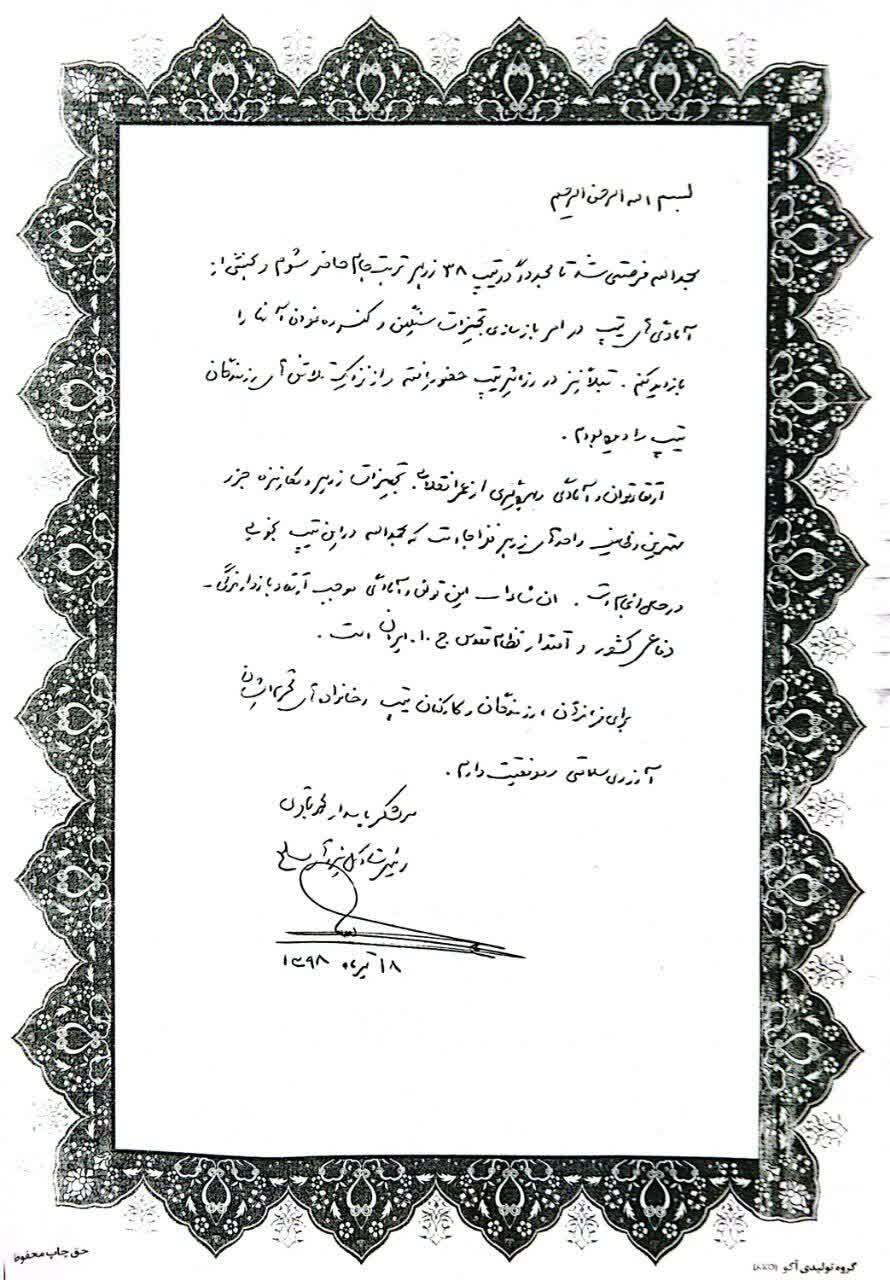 بسم اله الرحمن الرحیم
بحمداله فرصتی شد تا مجدداً در تیپ ۳۸ زرهی تربت جام حاضر شوم و بخشی از
آمادگی های تیپ در امر بازسازی تجهیزات سنگین و توان آنها را
بازدید کنم . قبلاً نیز در تیپ حضور یافته و از نزدیک تلاش های رزمندگان
تیپ را دیده بودم .
ارتقاء توان و آمادگی و بهره گیری از تجهیزات زرهی و مکانیزه جزو
مهمترین وظایف واحدهای زرهی نزاجا است که بحمداله در این تیپ بخوبی
در حال انجام است . ان شاءاله این توان و آمادگی موجب ارتقاء بازدارندگی
دفاعی کشور و اقتدار نظام مقدس ج.ا.ایران است .
برای فرماندهان ، رزمندگان و کارکنان تیپ و خانواده های محترم ایشان
آرزوی سلامتی و موفقیت دارم .
سرلشکر پاسدار محمد باقری
رئیس ستاد کل نیروهای مسلح
۱۸ تیر ماه ۱۳۹۸
حق چاپ محفوظ
گروه تولیدی آکو (AKO)